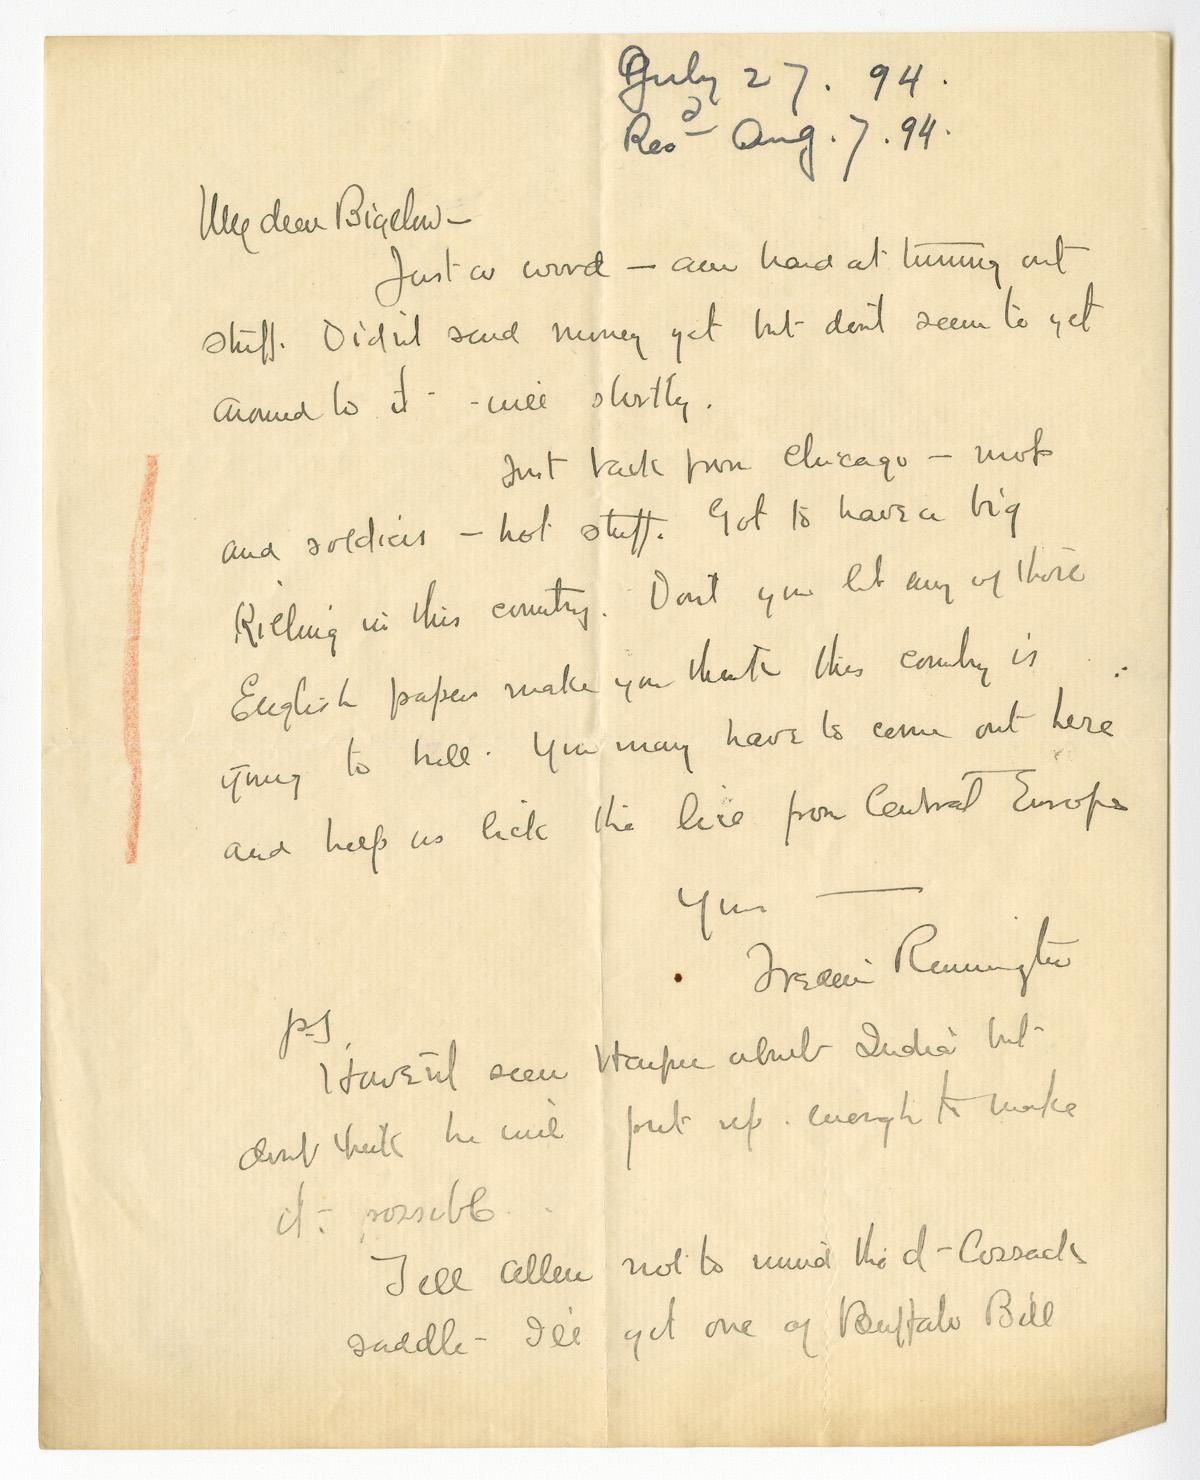 July 27. 94.
Recd Aug. 7. 94.
My dear Bigelow—
Just a word — am hard at turning out
stuff. Didn't send money yet but don't seem to get
around to it - - will shortly.
Just back from Chicago — mobs
and soldiers — hot stuff. Got to have a big
Killing in this country. Don't you let any of those
English papers make you think this country is
going to hell. You may have to come out here
and help us lick the lice from Central Europe
Yours —
Frederic Remington
P.S.
Haven't seen Harper about India but
dont think he will put up enough to make
it possible.
Tell Allen not to mind the d— Cossack
saddle— I'll get one of Buffalo Bill